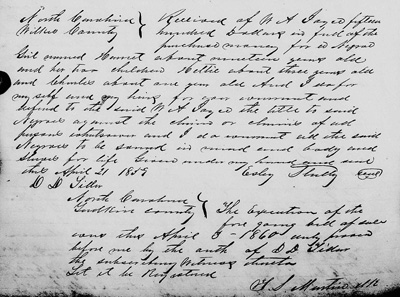 North Carolina } Received of W A Joyce fifteen
Wilkes County } hundred Dollars in full of the
purchase money for a Negro
Girl named Harriet about nineteen years old
and her two children Hettie about three years old
and about one year old And I do for
my self and my heirs for ever warrant and
defend to the said W A Joyce the title to said
Negroes against the claims or claims of all
persons whatsoever and I do warrant all the said
Negroes to be sound in mind and body and
slaves for life Given under my hand and seal
this April 21 1859
(seal)
D D
North Carolina }
County } The Execution of the
fore going bill of sale
was this April 3 1860 duly proved
before me by the oath of D D
the subscribing witness thereto
Let it be Registered